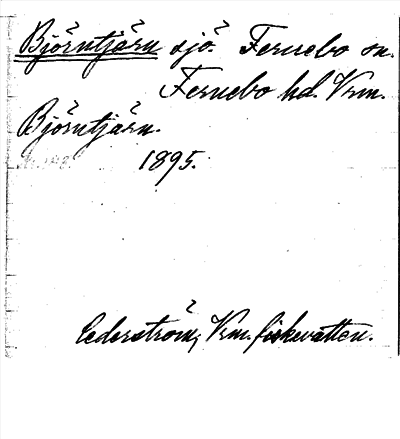 Björntjärn sjö. Fernebo sn.
Fernebo hd. Vrm.
Björntjärn.
1895.
Cederström, Vrm. fiskevatten.